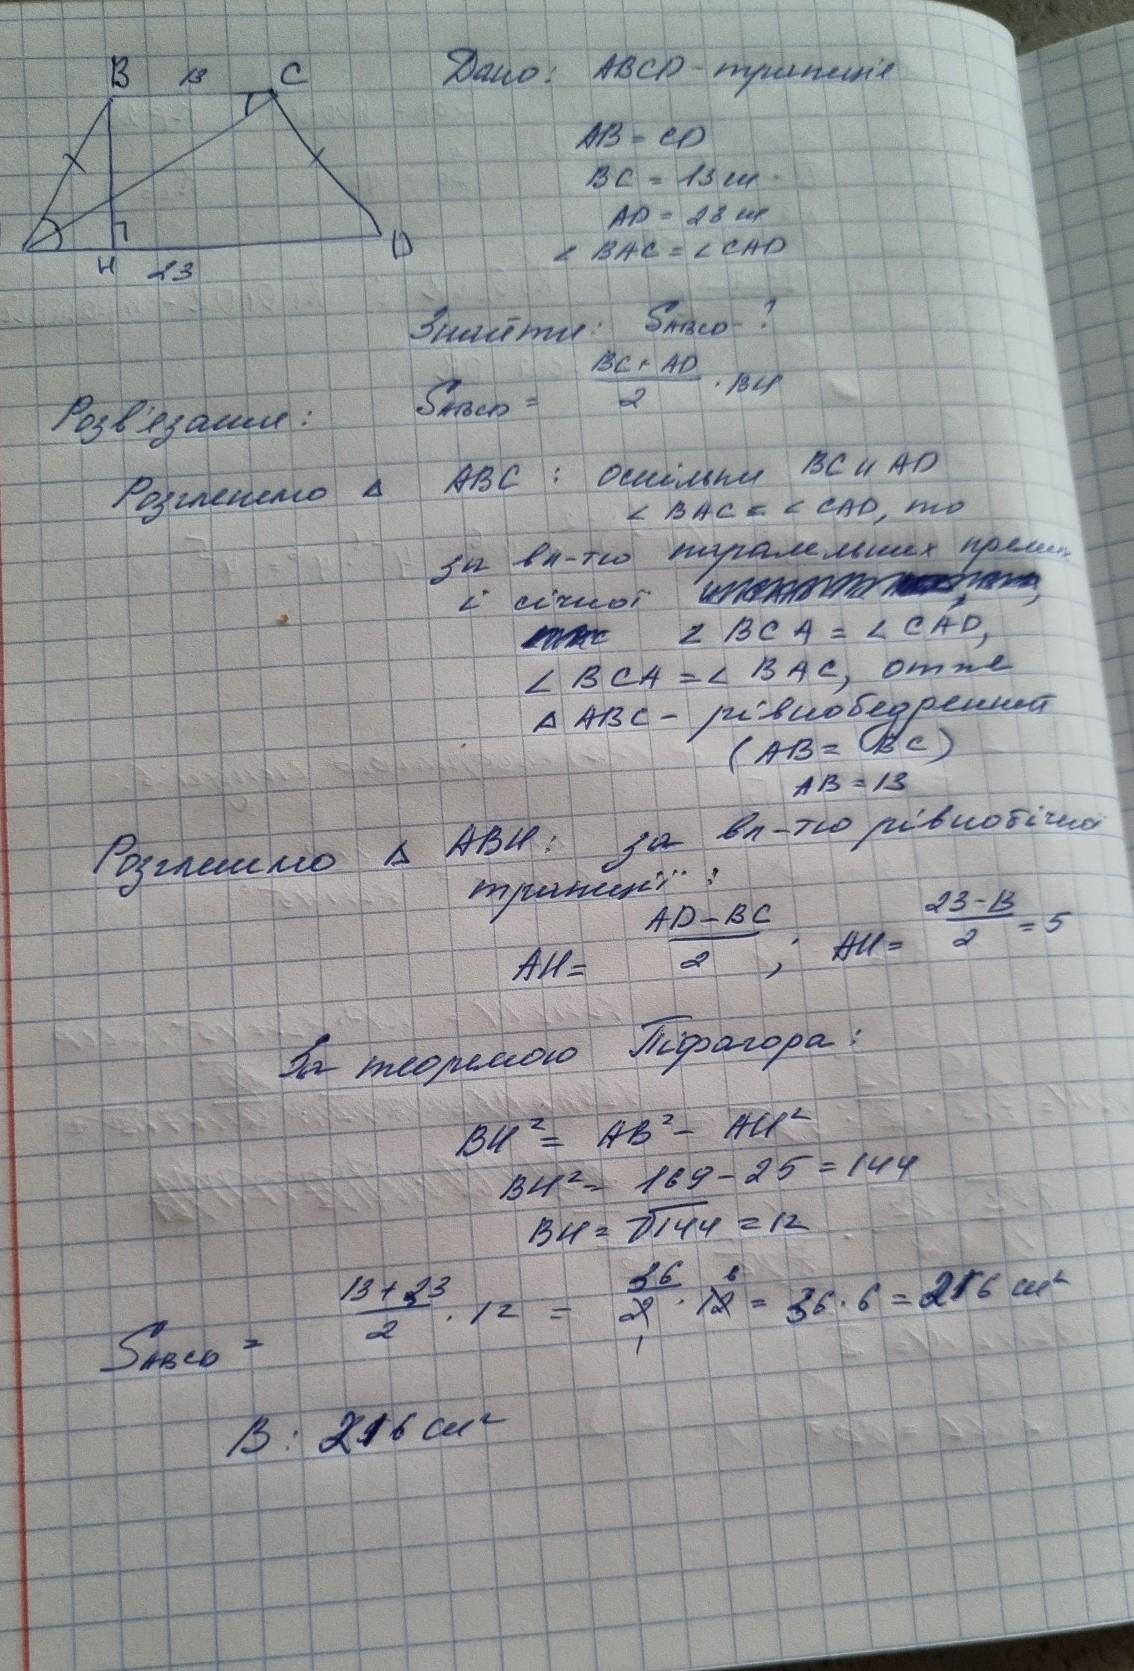 B 13 C
H 23 D
Дано: ABCD - трапеція
AB = CD
BC = 13 см
AD = 23 см
∠ BAC = ∠ CAD
Знайти: S_ABCD - ?
Розв'язання: S_ABCD = (BC + AD)/2 · BH
Розглянемо Δ ABC : оскільки BC || AD
∠ BAC = ∠ CAD, то
за вл-тю паралельних прямих
і січної
∠ BCA = ∠ CAD,
∠ BCA = ∠ BAC, отже
Δ ABC - рівнобедрений
(AB = BC)
AB = 13
Розглянемо Δ ABH: за вл-тю рівнобічної
трапеції :
AH = (AD - BC)/2 ; AH = (23 - 13)/2 = 5
За теоремою Піфагора:
BH² = AB² - AH²
BH² = 169 - 25 = 144
BH = √144 = 12
S_ABCD = (13 + 23)/2 · 12 = 36/2 · 12 = 36 · 6 = 216 см²
1 6
В: 216 см²